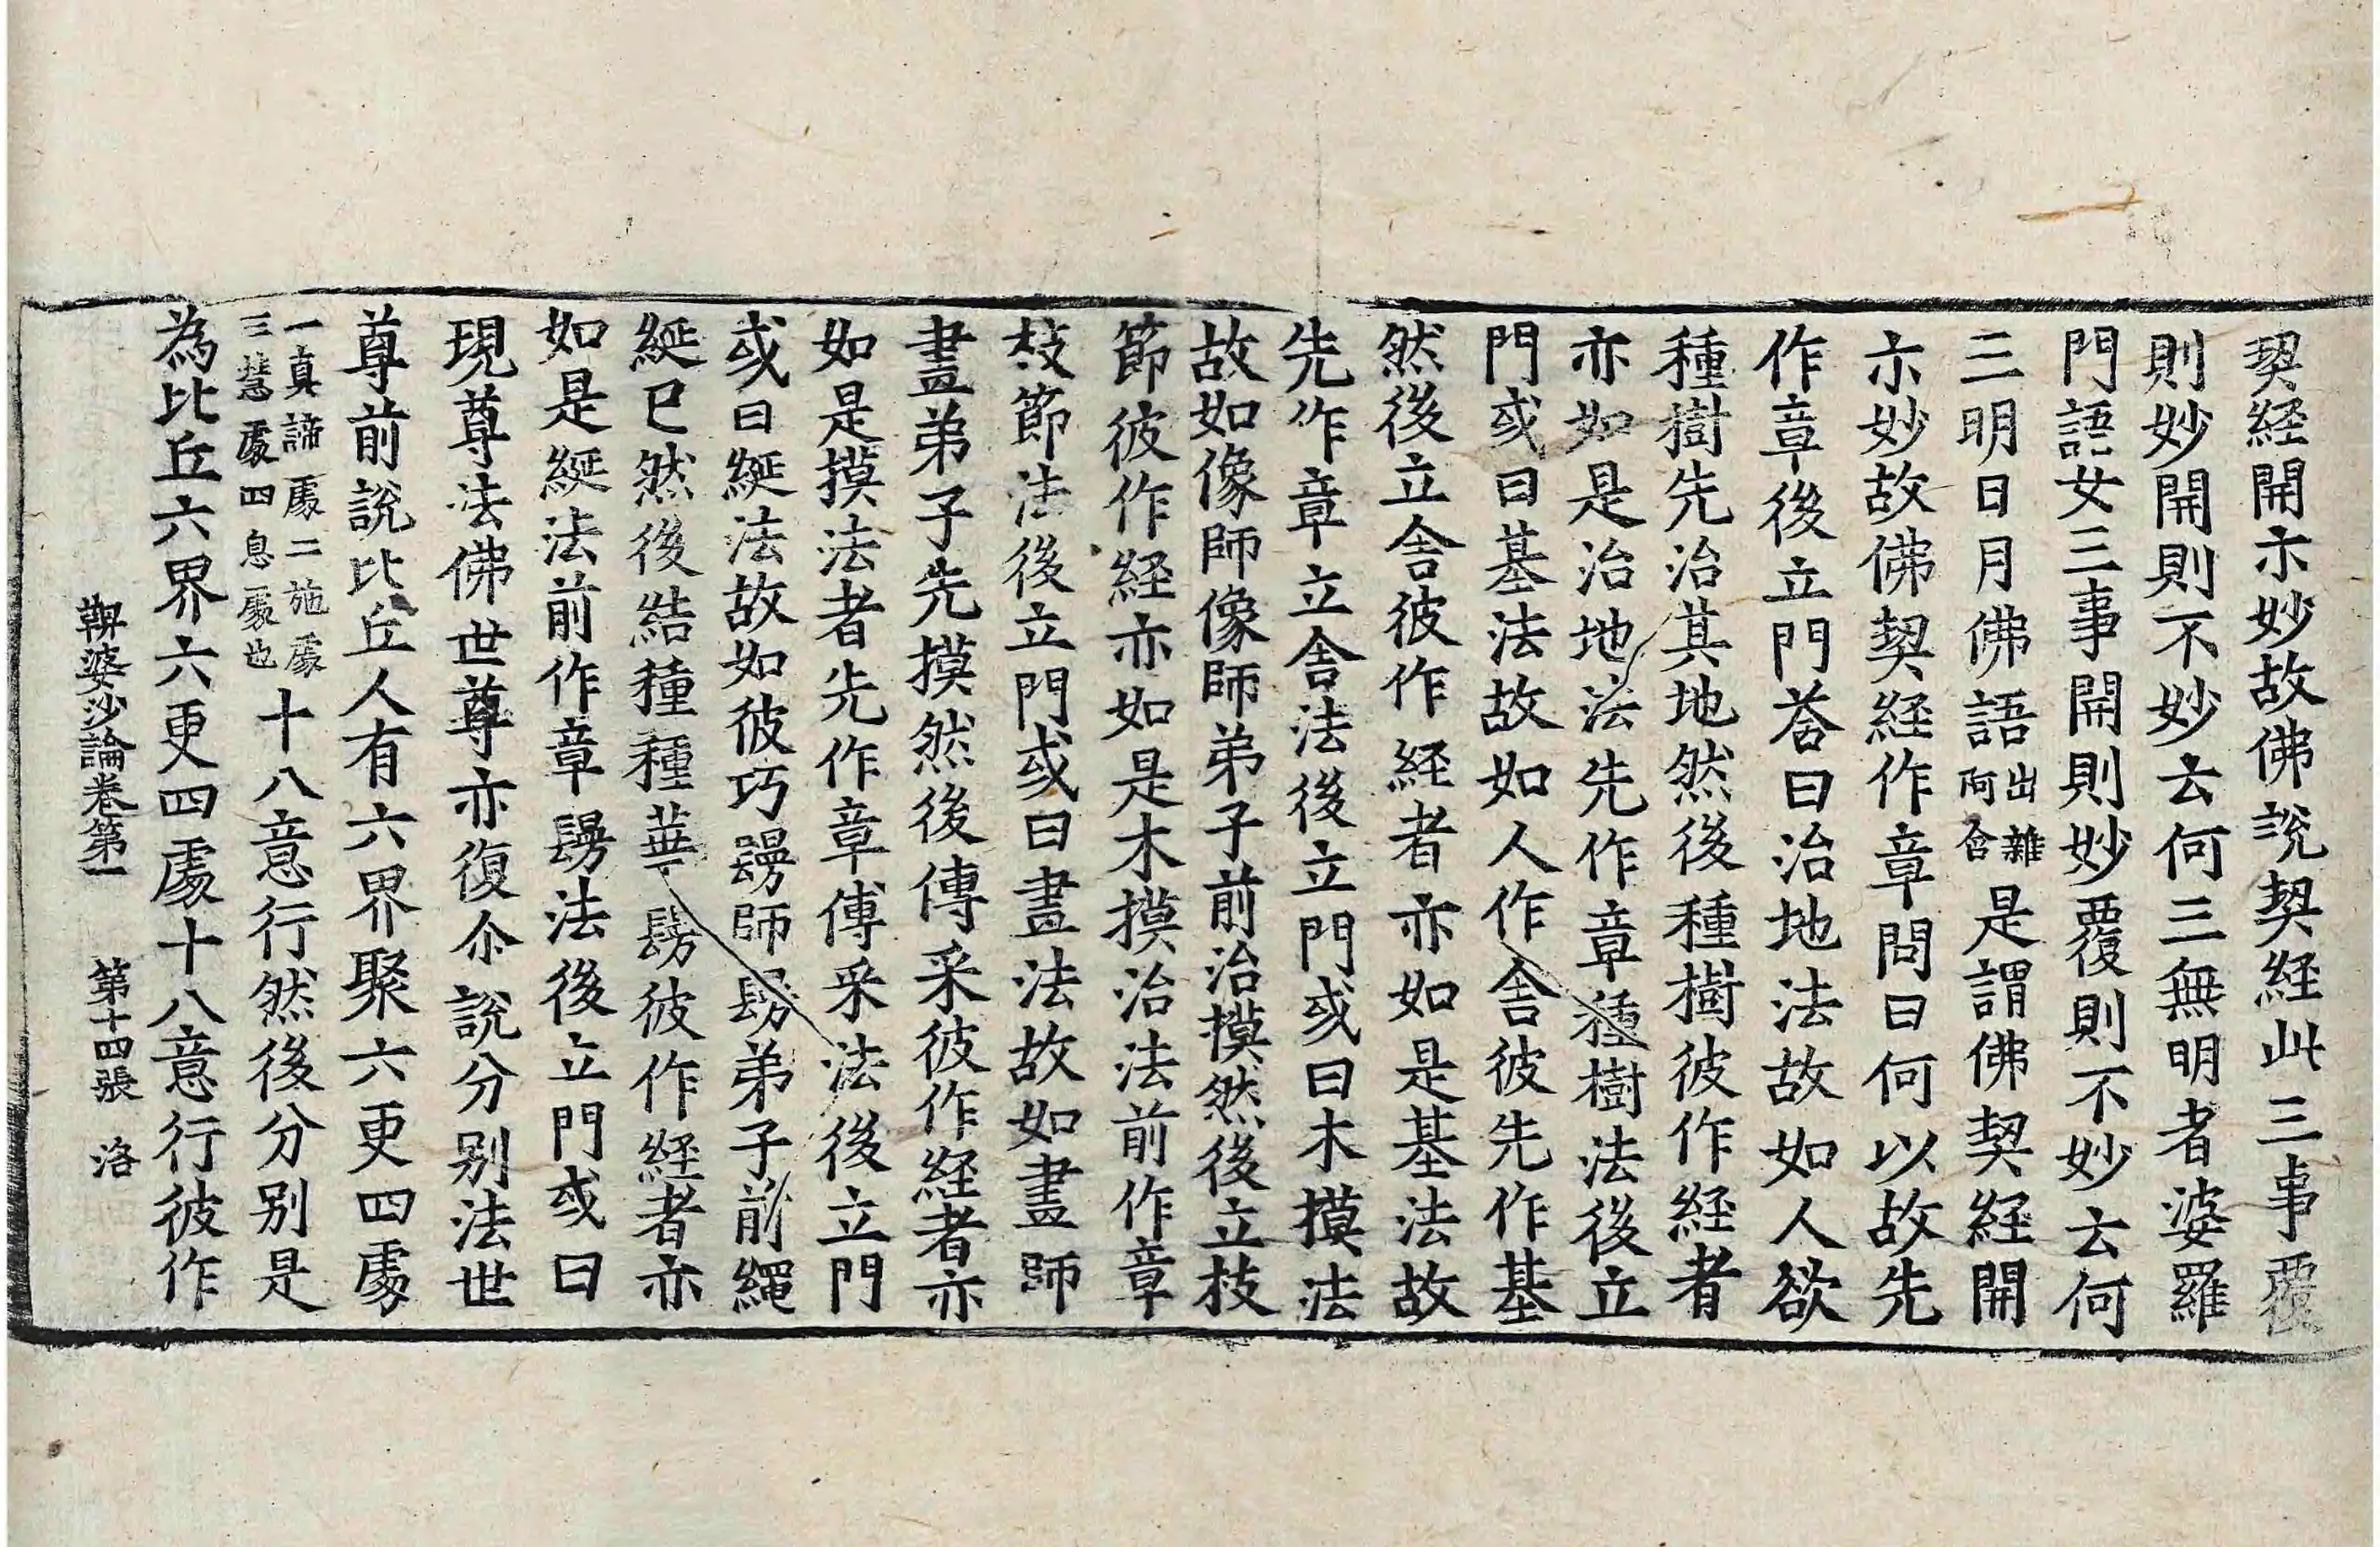 契経開示妙故佛說契経此三事覆
則妙開則不妙云何三無明者婆羅
門語女三事開則妙覆則不妙云何
三明日月佛語出雜阿含是謂佛契経開
示妙故佛契経作章問曰何以故先
作章後立門荅曰治地法故如人欲
種樹先治其地然後種樹彼作経者
亦如是治地法先作章種樹法後立
門或曰基法故如人作舎彼先作基
然後立舎彼作経者亦如是基法故
先作章立舎法後立門或曰木摸法
故如像師像師弟子前治摸然後立枝
節彼作経亦如是木摸治法前作章
枝節法後立門或曰畫法故如畫師
畫弟子先摸然後傅采彼作経者亦
如是摸法者先作章傅采法後立門
或曰綖法故如彼巧鬘師鬘弟子前繩
綖已然後結種種華鬘彼作経者亦
如是綖法前作章鬘法後立門或曰
現尊法佛世尊亦復尒說分别法世
尊前說比丘人有六界聚六更四處
一真諦處二施處三慧處四息處也十八意行然後分别是
為比丘六界六更四處十八意行彼作
鞞婆沙論卷第一 第十四張 洛